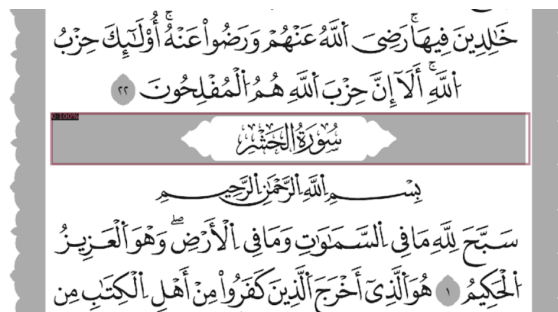 خَٰلِدِينَ فِيهَاۚ رَضِيَ ٱللَّهُ عَنْهُمْ وَرَضُوا۟ عَنْهُۚ أُو۟لَٰٓئِكَ حِزْبُ
ٱللَّهِۚ أَلَآ إِنَّ حِزْبَ ٱللَّهِ هُمُ ٱلْمُفْلِحُونَ ٢٢
سُورَةُ الْحَشْرِ
بِسْمِ ٱللَّهِ ٱلرَّحْمَٰنِ ٱلرَّحِيمِ
سَبَّحَ لِلَّهِ مَا فِى ٱلسَّمَٰوَٰتِ وَمَا فِى ٱلْأَرْضِۖ وَهُوَ ٱلْعَزِيزُ
ٱلْحَكِيمُ ١ هُوَ ٱلَّذِىٓ أَخْرَجَ ٱلَّذِينَ كَفَرُوا۟ مِنْ أَهْلِ ٱلْكِتَٰبِ مِن